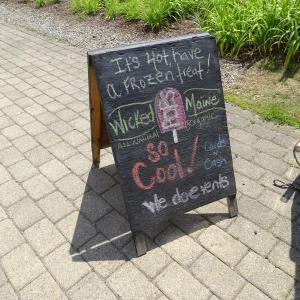 It's Hot, have
a Frozen treat!
Wicked Maine
All natural organic
So
Cool!
Cards
n
Cash
We do events